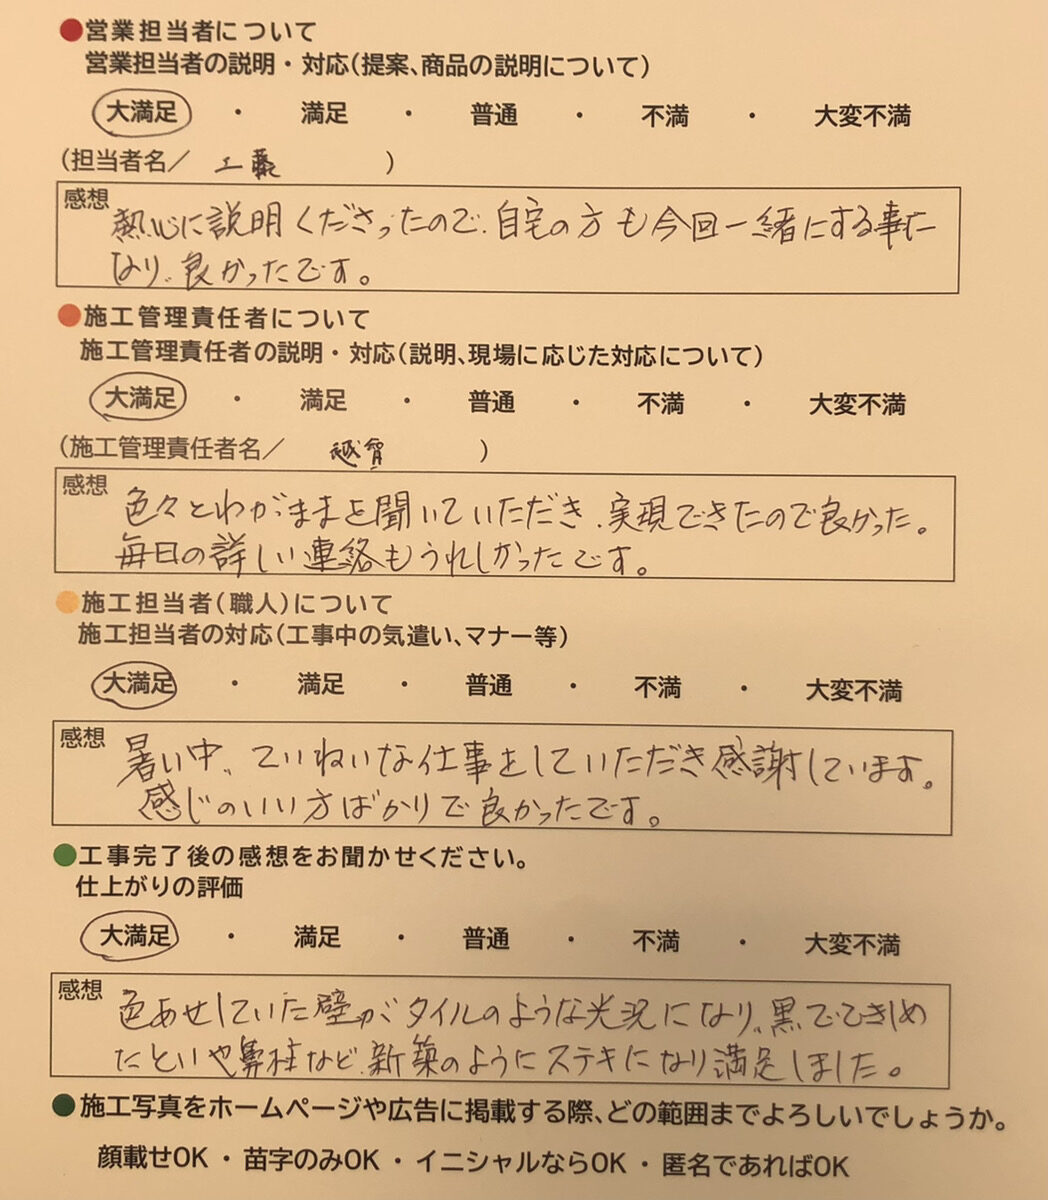 ●営業担当者について
営業担当者の説明・対応(提案、商品の説明について)
大満足 ・ 満足 ・ 普通 ・ 不満 ・ 大変不満
(担当者名／ 工藤 )
感想
熱心に説明くださったので、自宅の方も今回一緒にする事に
なり、良かったです。
●施工管理責任者について
施工管理責任者の説明・対応(説明、現場に応じた対応について)
大満足 ・ 満足 ・ 普通 ・ 不満 ・ 大変不満
(施工管理責任者名／ 越賀 )
感想
色々とわがままを聞いていただき、実現できたので良かった。
毎日の詳しい連絡もうれしかったです。
●施工担当者(職人)について
施工担当者の対応(工事中の気遣い、マナー等)
大満足 ・ 満足 ・ 普通 ・ 不満 ・ 大変不満
感想
暑い中、ていねいな仕事をしていただき感謝しています。
感じのいい方ばかりで良かったです。
●工事完了後の感想をお聞かせください。
仕上がりの評価
大満足 ・ 満足 ・ 普通 ・ 不満 ・ 大変不満
感想
色あせしていた壁がタイルのような光沢になり、黒でひきしめ
たといや鼻柱など、新築のようにステキになり満足しました。
●施工写真をホームページや広告に掲載する際、どの範囲までよろしいでしょうか。
顔載せOK ・ 苗字のみOK ・ イニシャルならOK ・ 匿名であればOK